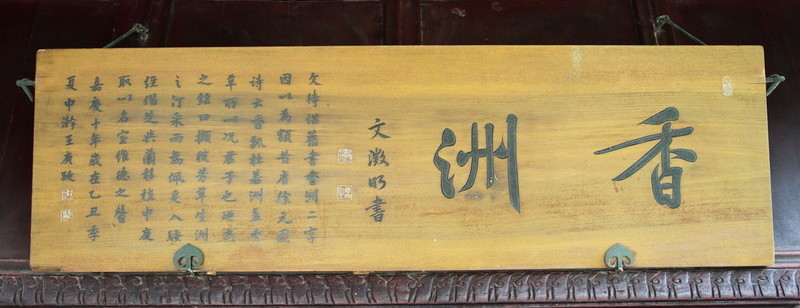 香洲
文徵明書
文待詔舊書香洲二字
因以為額昔唐徐元固
詩云香飄杜若洲蓋香
草所以况君子也迺為
之銘曰擷彼芳草生洲
之汀采而為佩爰入騷
經偕芝與蘭移植中庭
取以名室維德之馨
嘉慶十年歲在乙丑季
夏中澣王庚跋